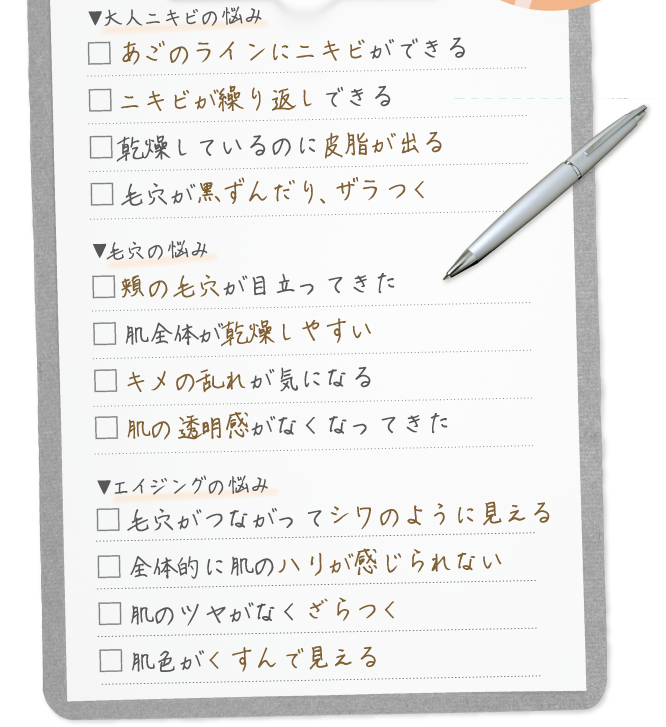 ▼大人ニキビの悩み
あごのラインにニキビができる
ニキビが繰り返しできる
乾燥しているのに皮脂が出る
毛穴が黒ずんだり、ザラつく
▼毛穴の悩み
頬の毛穴が目立ってきた
肌全体が乾燥しやすい
キメの乱れが気になる
肌の透明感がなくなってきた
▼エイジングの悩み
毛穴がつながってシワのように見える
全体的に肌のハリが感じられない
肌のツヤがなくざらつく
肌色がくすんで見える